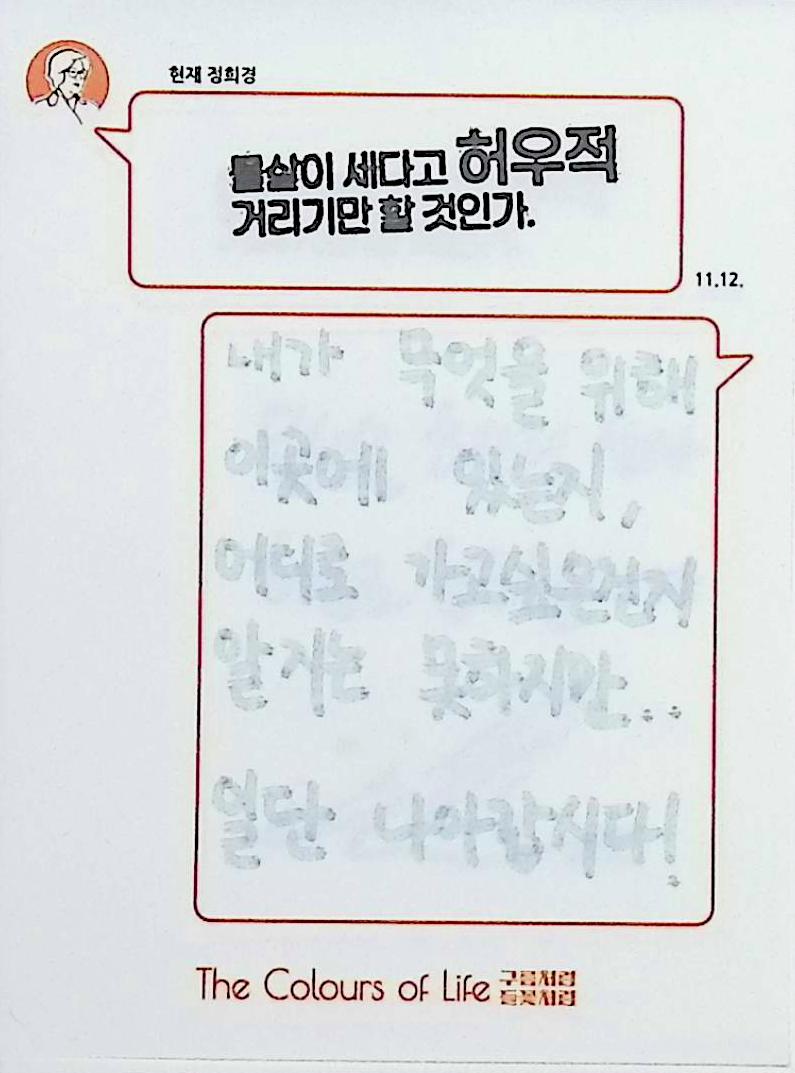 현재 정희경
물살이 세다고 허우적
거리기만 할 것인가.
11.12.
내가 무엇을 위해
이곳에 있는지,
어디로 가고싶은건지
알지는 못하지만...
일단 나아갑시다!
The Colours of Life 구름처럼
들꽃처럼